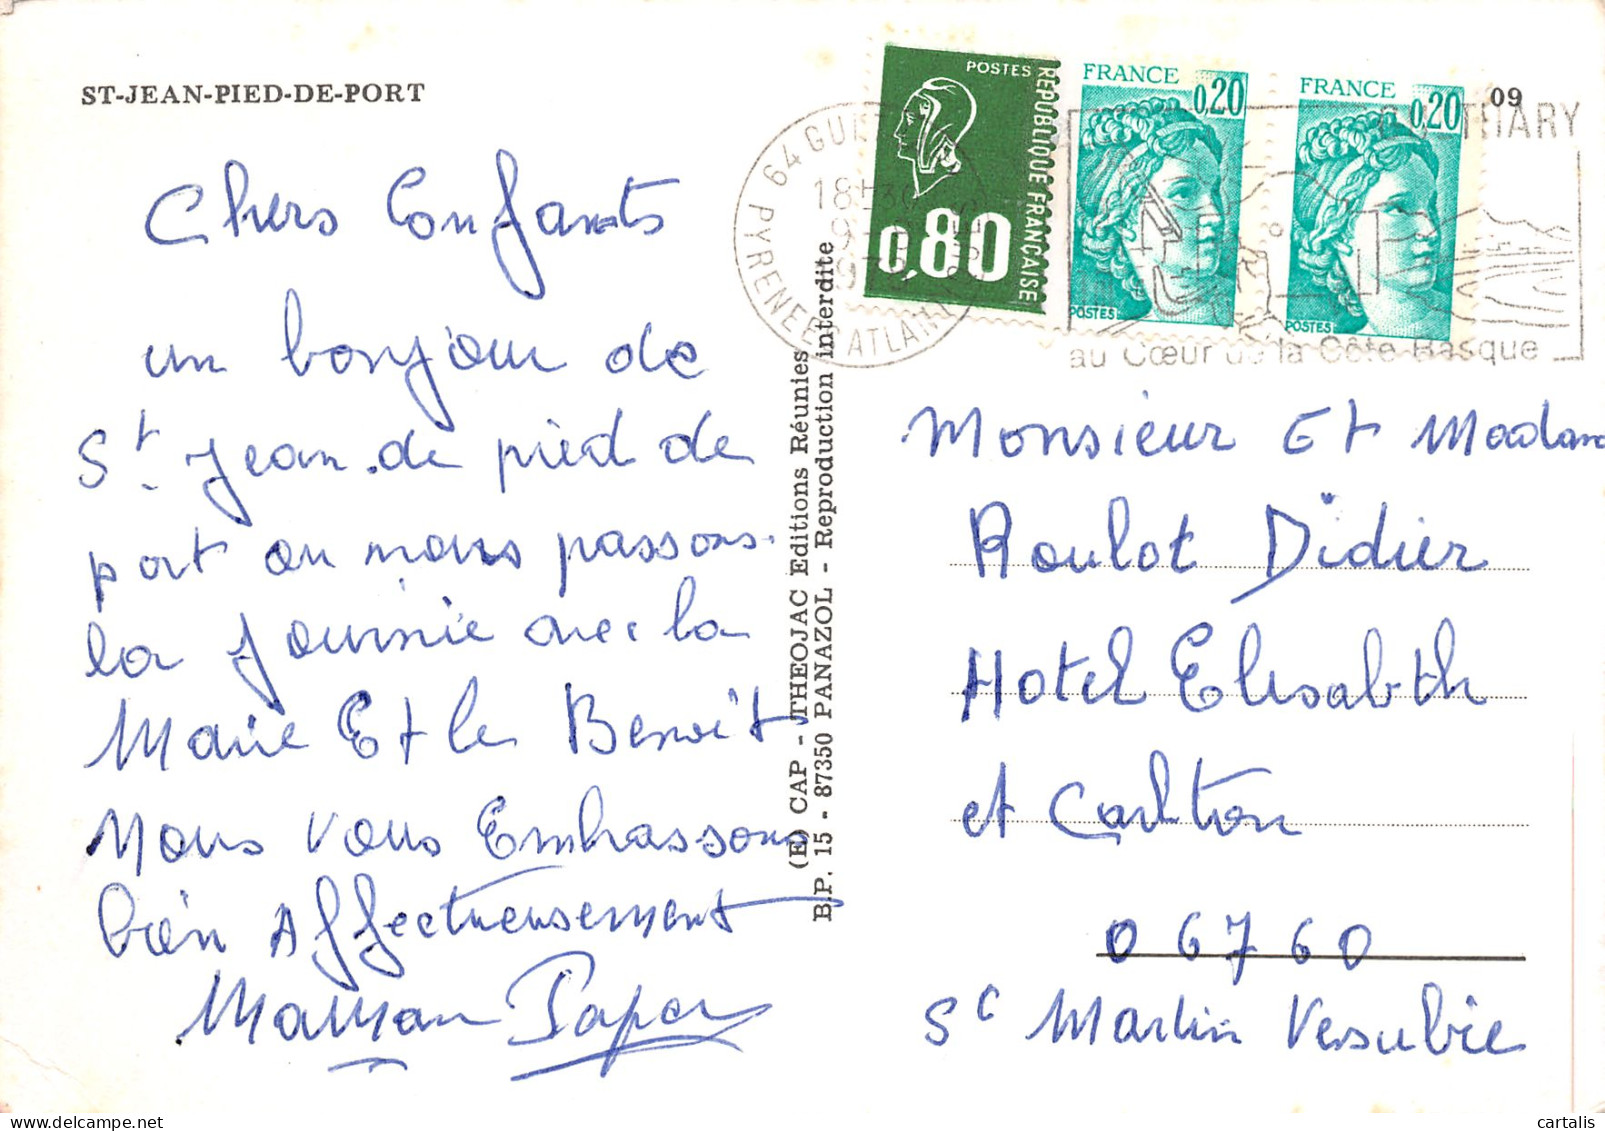 ST-JEAN-PIED-DE-PORT
Chers Enfants
un bonjour de
St Jean de pied de
port ou nous passons
la journée avec la
Marie Et le Benoit
Nous vous Embrassons
bien Affectueusement
Maman Papa
(E) CAP - THEOJAC Editions Réunies
B.P. 15 - 87350 PANAZOL - Reproduction interdite
POSTES
REPUBLIQUE FRANÇAISE
0,80
FRANCE
0,20
POSTES
FRANCE
0,20
POSTES
09
64 GU
PYRENEES ATLANT
18H30
THARY
au Cœur de la Côte Basque
Monsieur Et Madam
Roulot Didier
Hotel Elisabeth
et Carlton
06760
St Martin Vesubie
cartalis